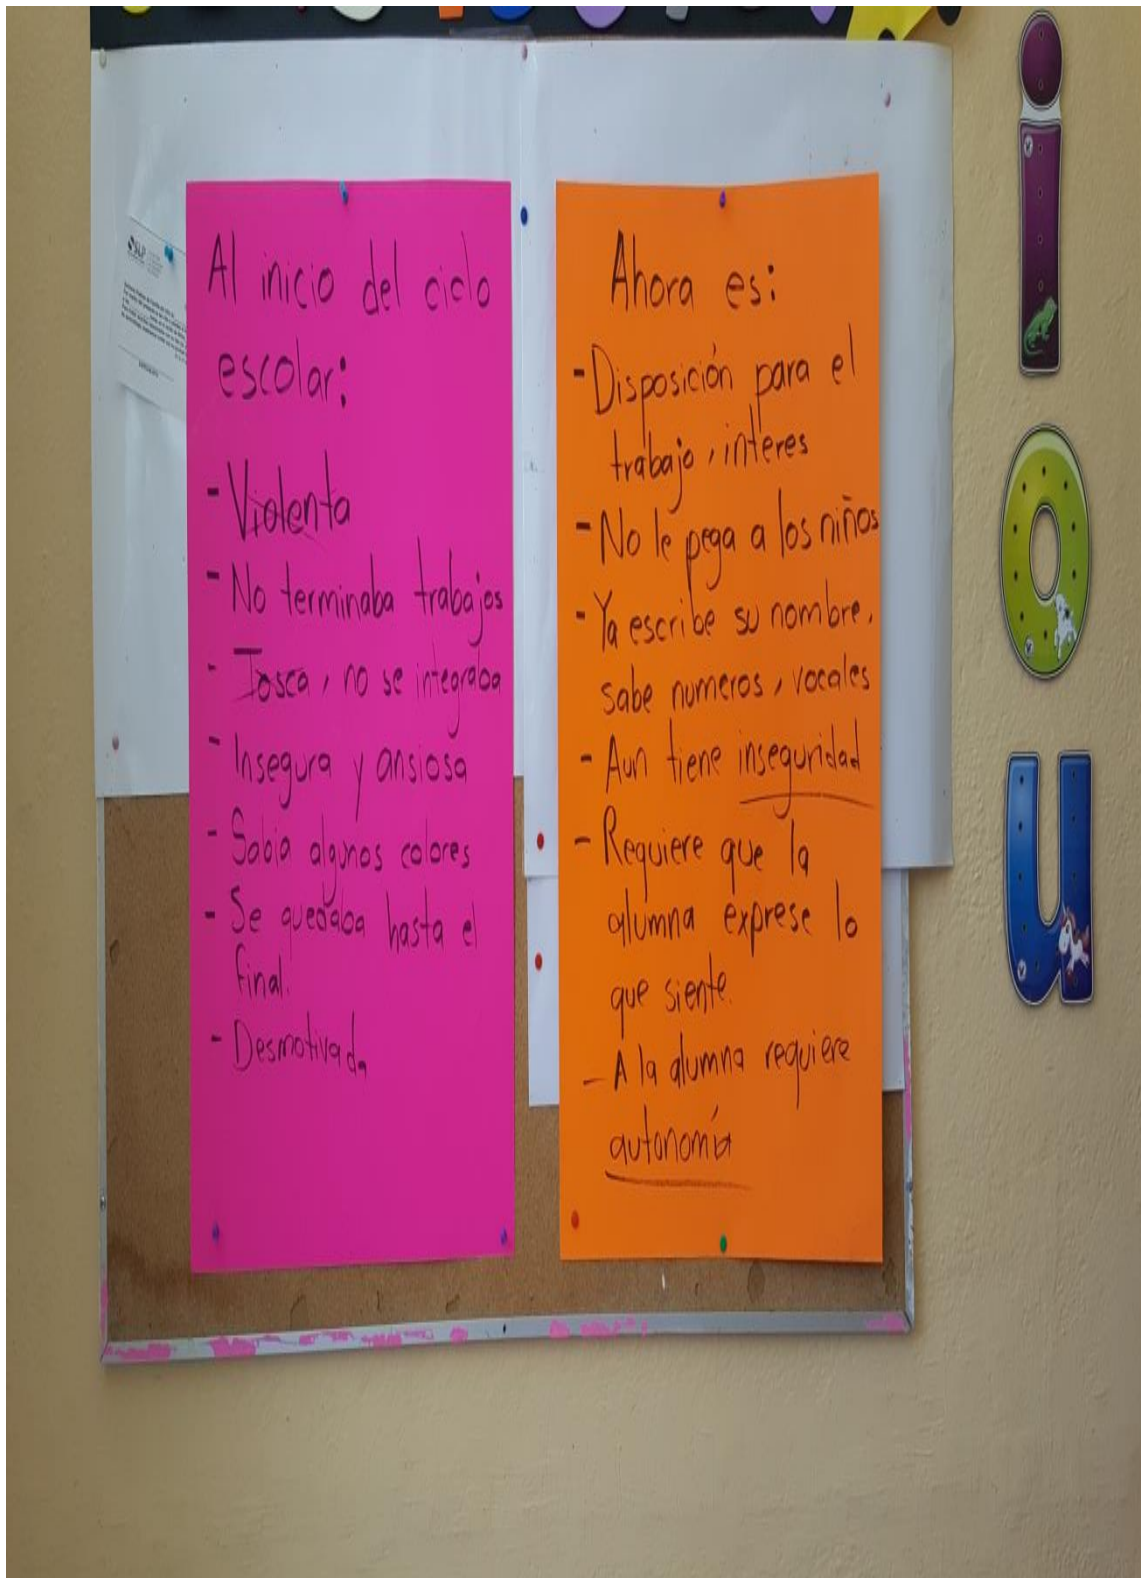 Al inicio del ciclo
escolar:
- Violenta
- No terminaba trabajos
- Tosca, no se integraba
- Insegura y ansiosa
- Sabia algunos colores
- Se quedaba hasta el
final.
- Desmotivada
Ahora es:
- Disposición para el
trabajo, interes
- No le pega a los niños
- Ya escribe su nombre,
sabe numeros, vocales
- Aun tiene inseguridad
- Requiere que la
alumna exprese lo
que siente.
- A la alumna requiere
autonomía
i
o
u